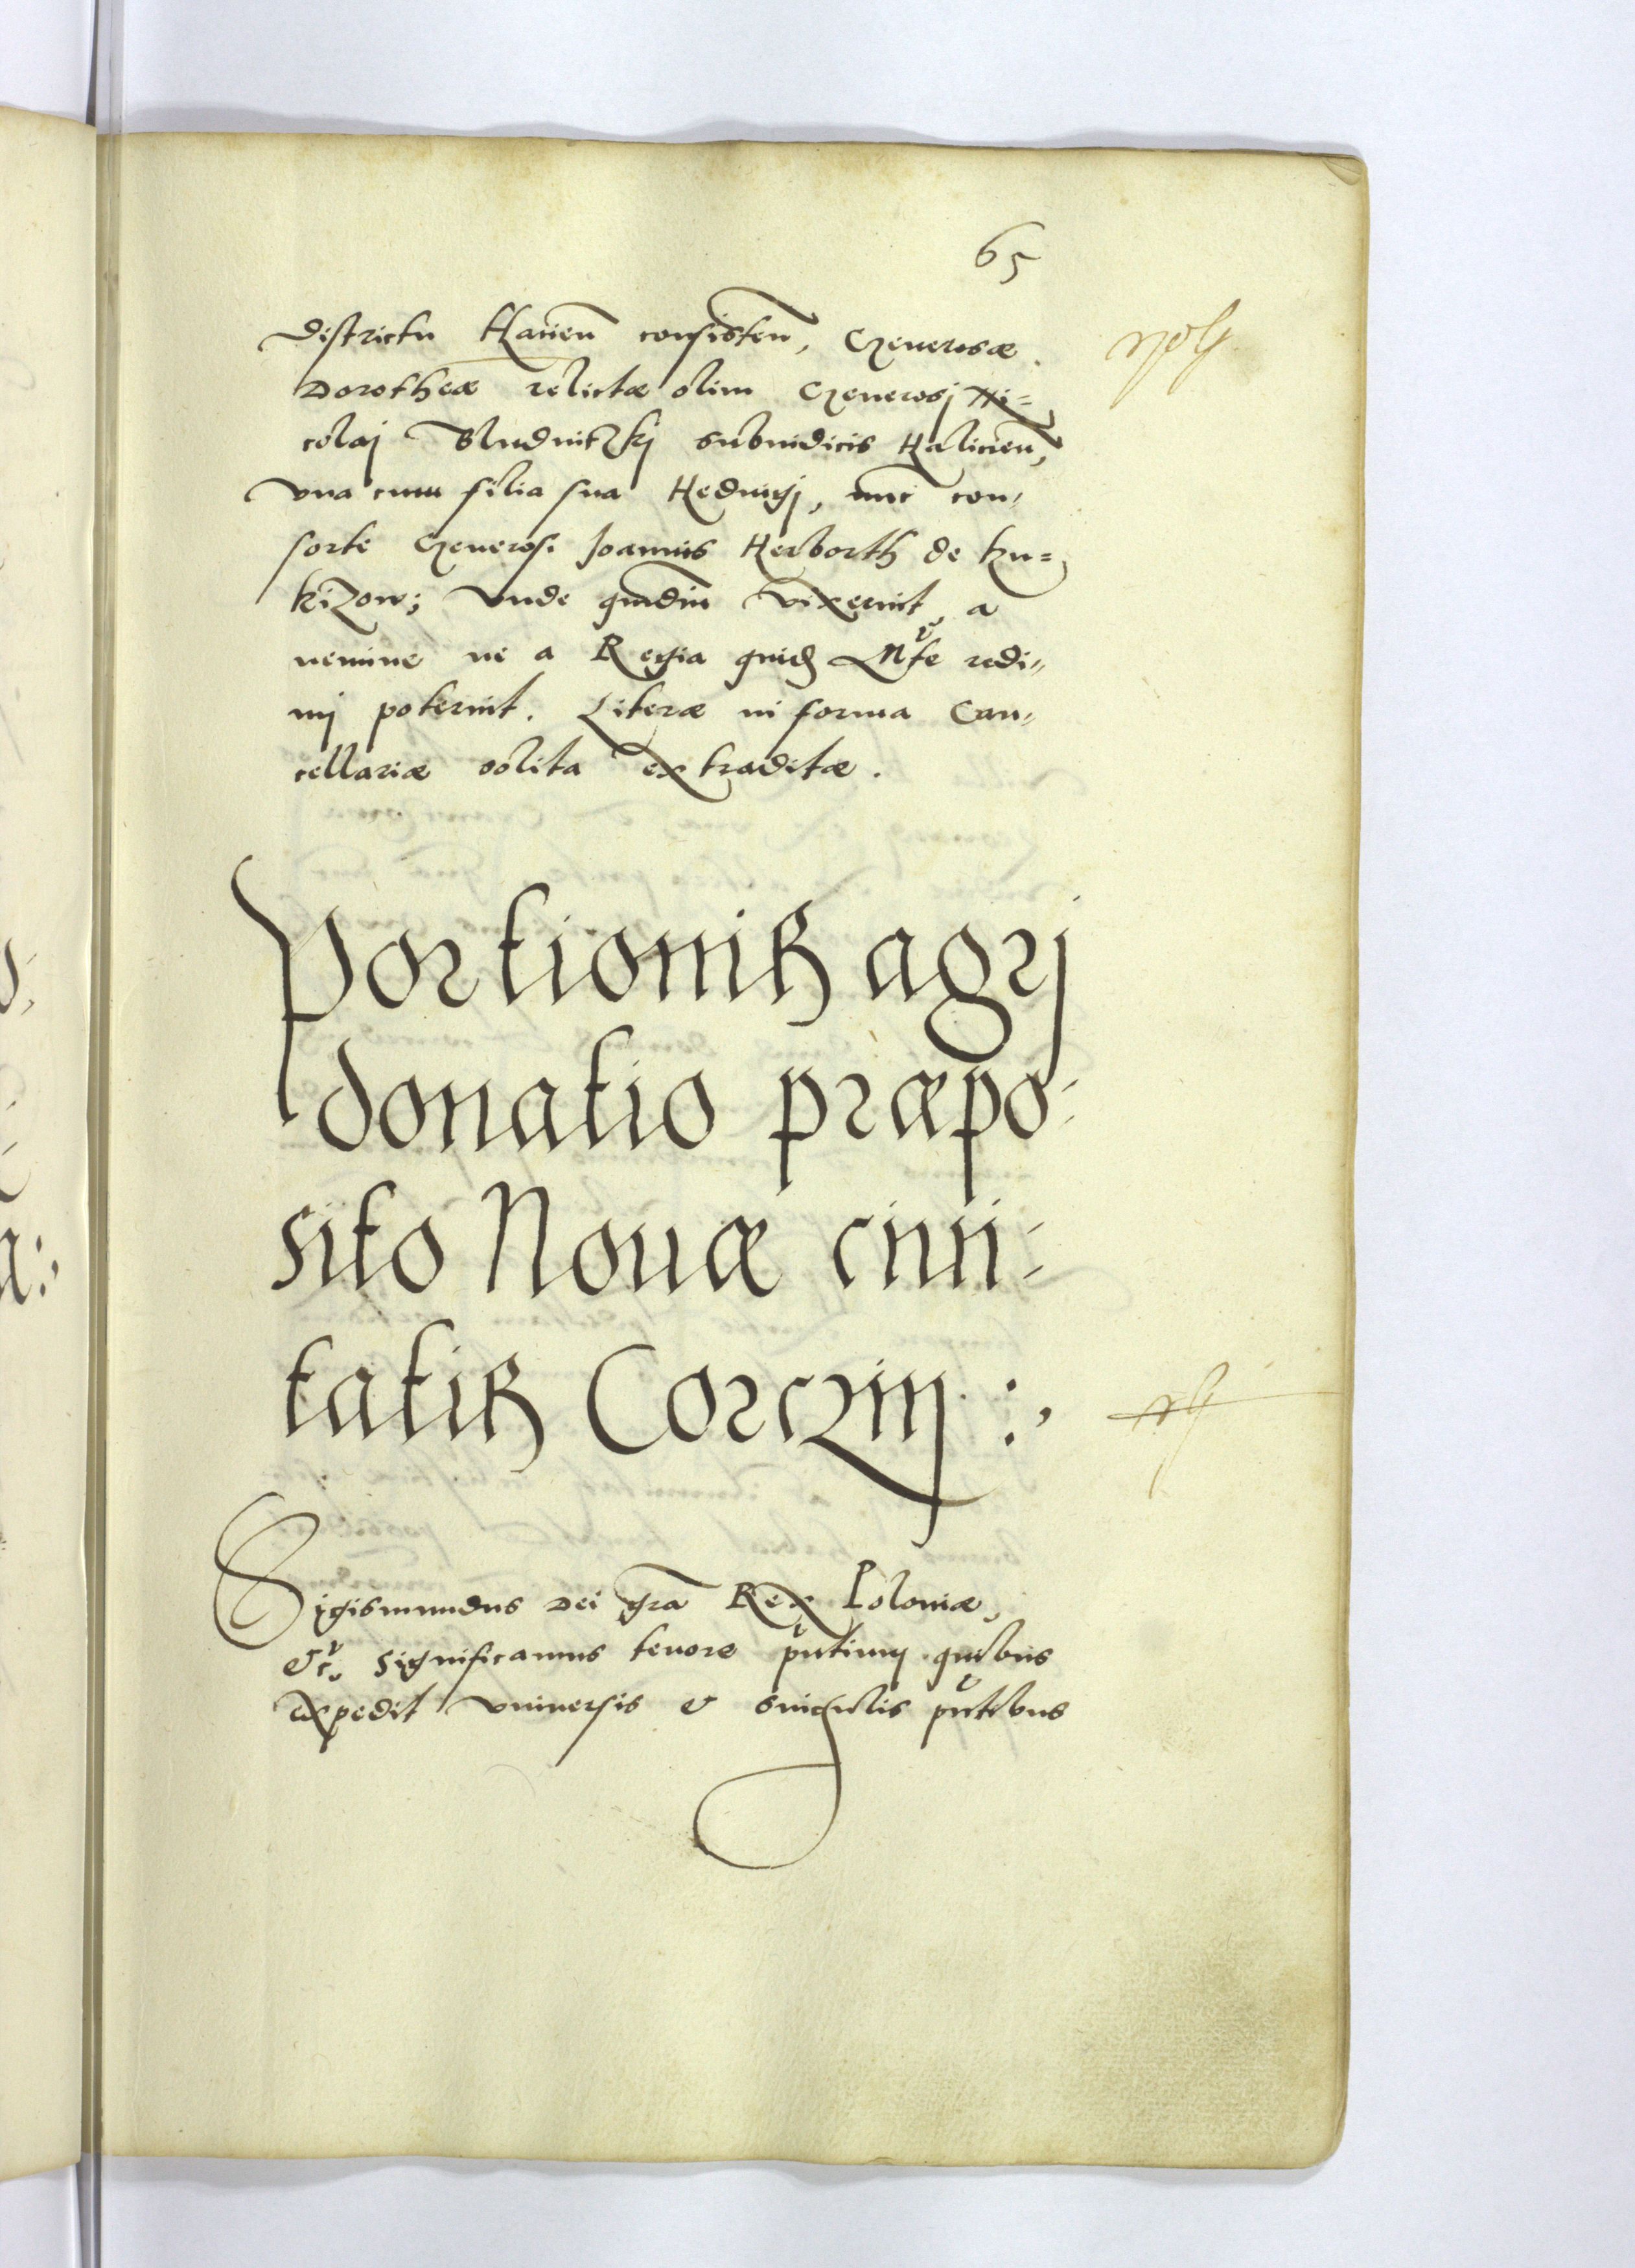 65
districtu Halicien̄ consisten̄, Generosæ
Dorotheæ relictæ olim Generosj Ni=
colaj Bludnitzkj subiudicis Haliciens̄,
vna cum filia sua Heduigj, nunc con„
sorte Generosi Joannis Herborth de Ku=
kizow; vnde quādiu vixerint, a
nemine ne a Regia quidē Mte redi„
mj poterint. Literæ in forma Can„
cellariæ solita extraditæ.
Portionis agrj
donatio præpo=
sito Nouæ ciui=
tatis Corczin :,
Sigismundus Dei gr̄a Rex Poloniæ,
Etc, Significamus tenore pn̄tium quibus
expedit vniuersis & singulis pn̄tibus